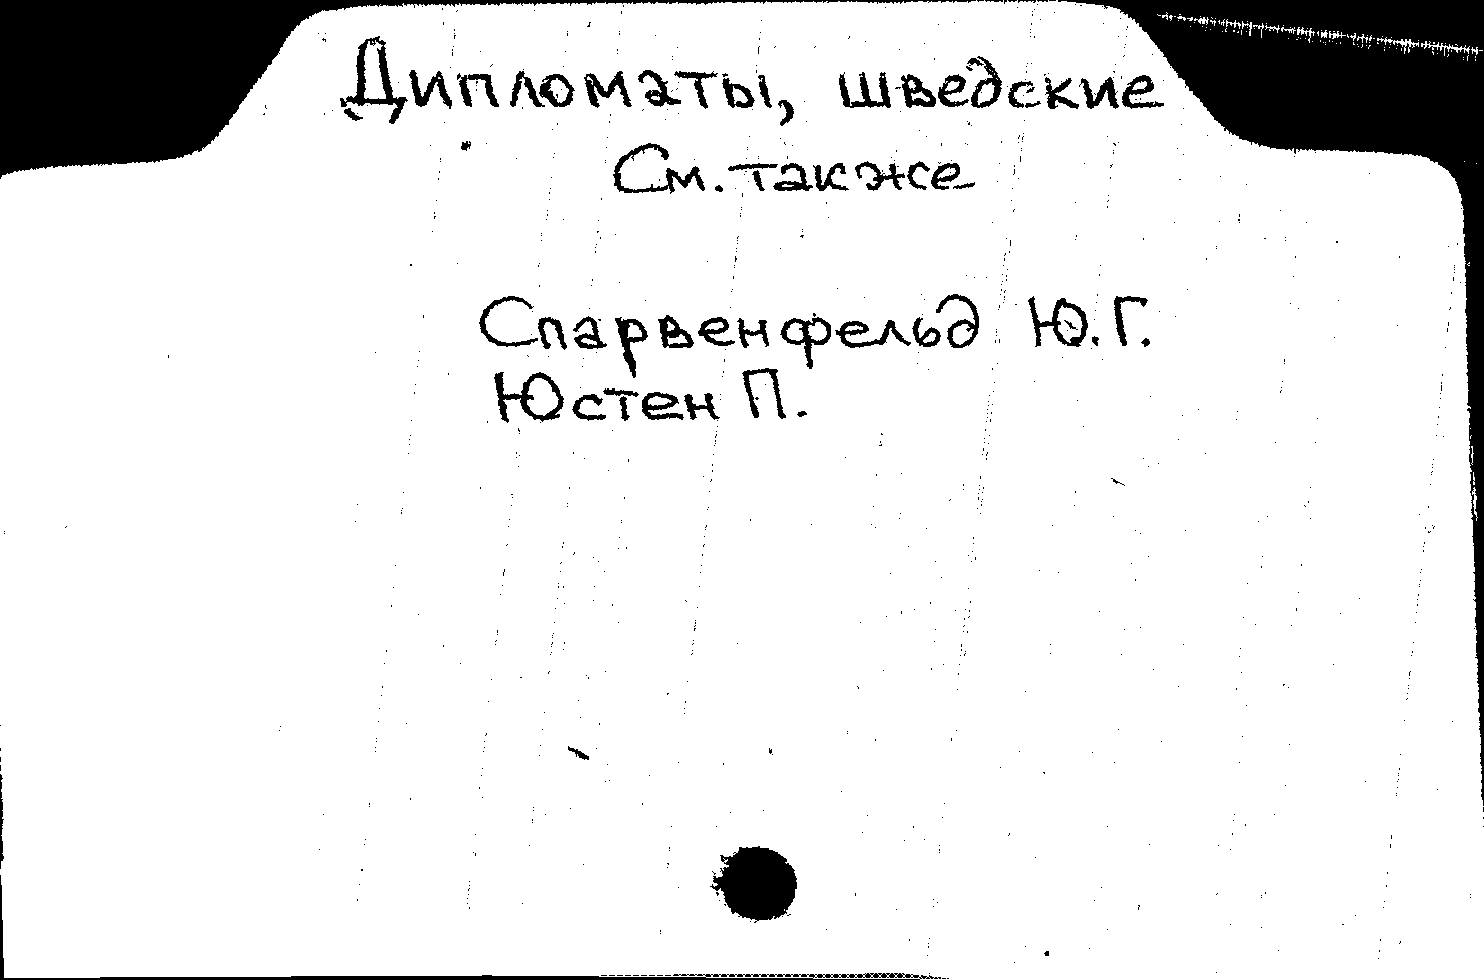 Дипломаты, шведские
См. также
Спарвенфельд Ю.Г.
Юстен П.